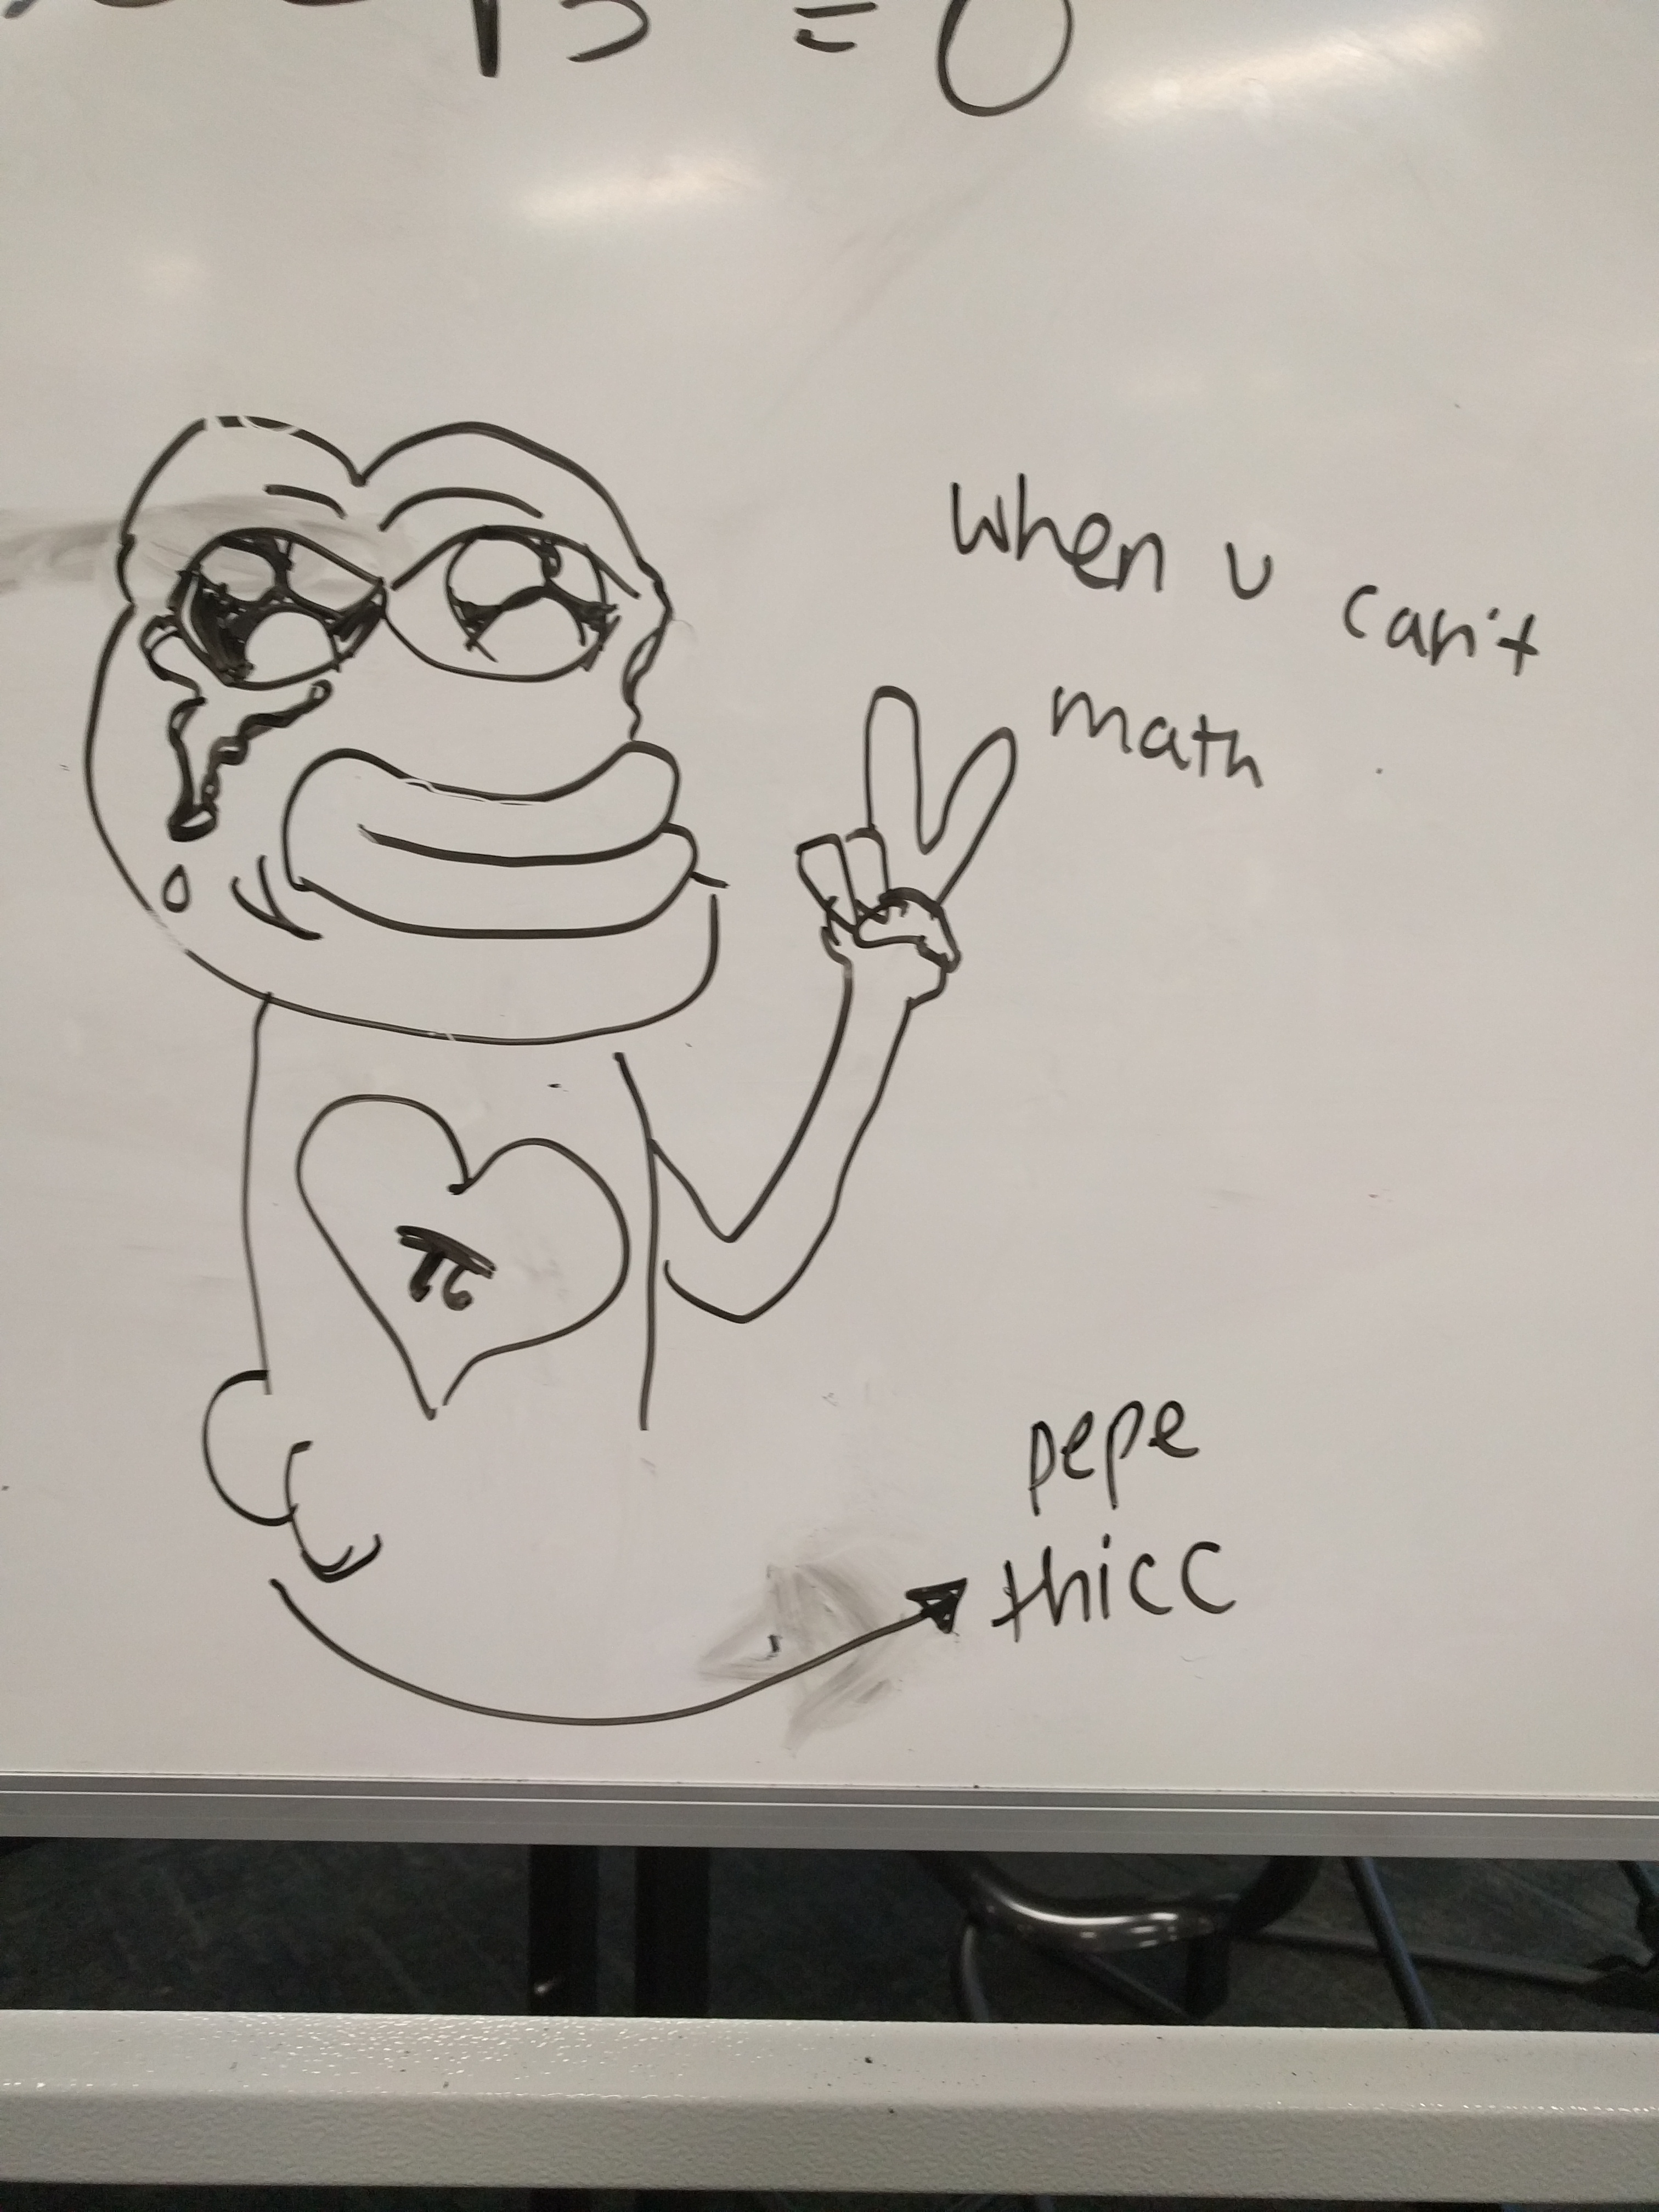 = 0
when u can't
math
π
pepe
thicc